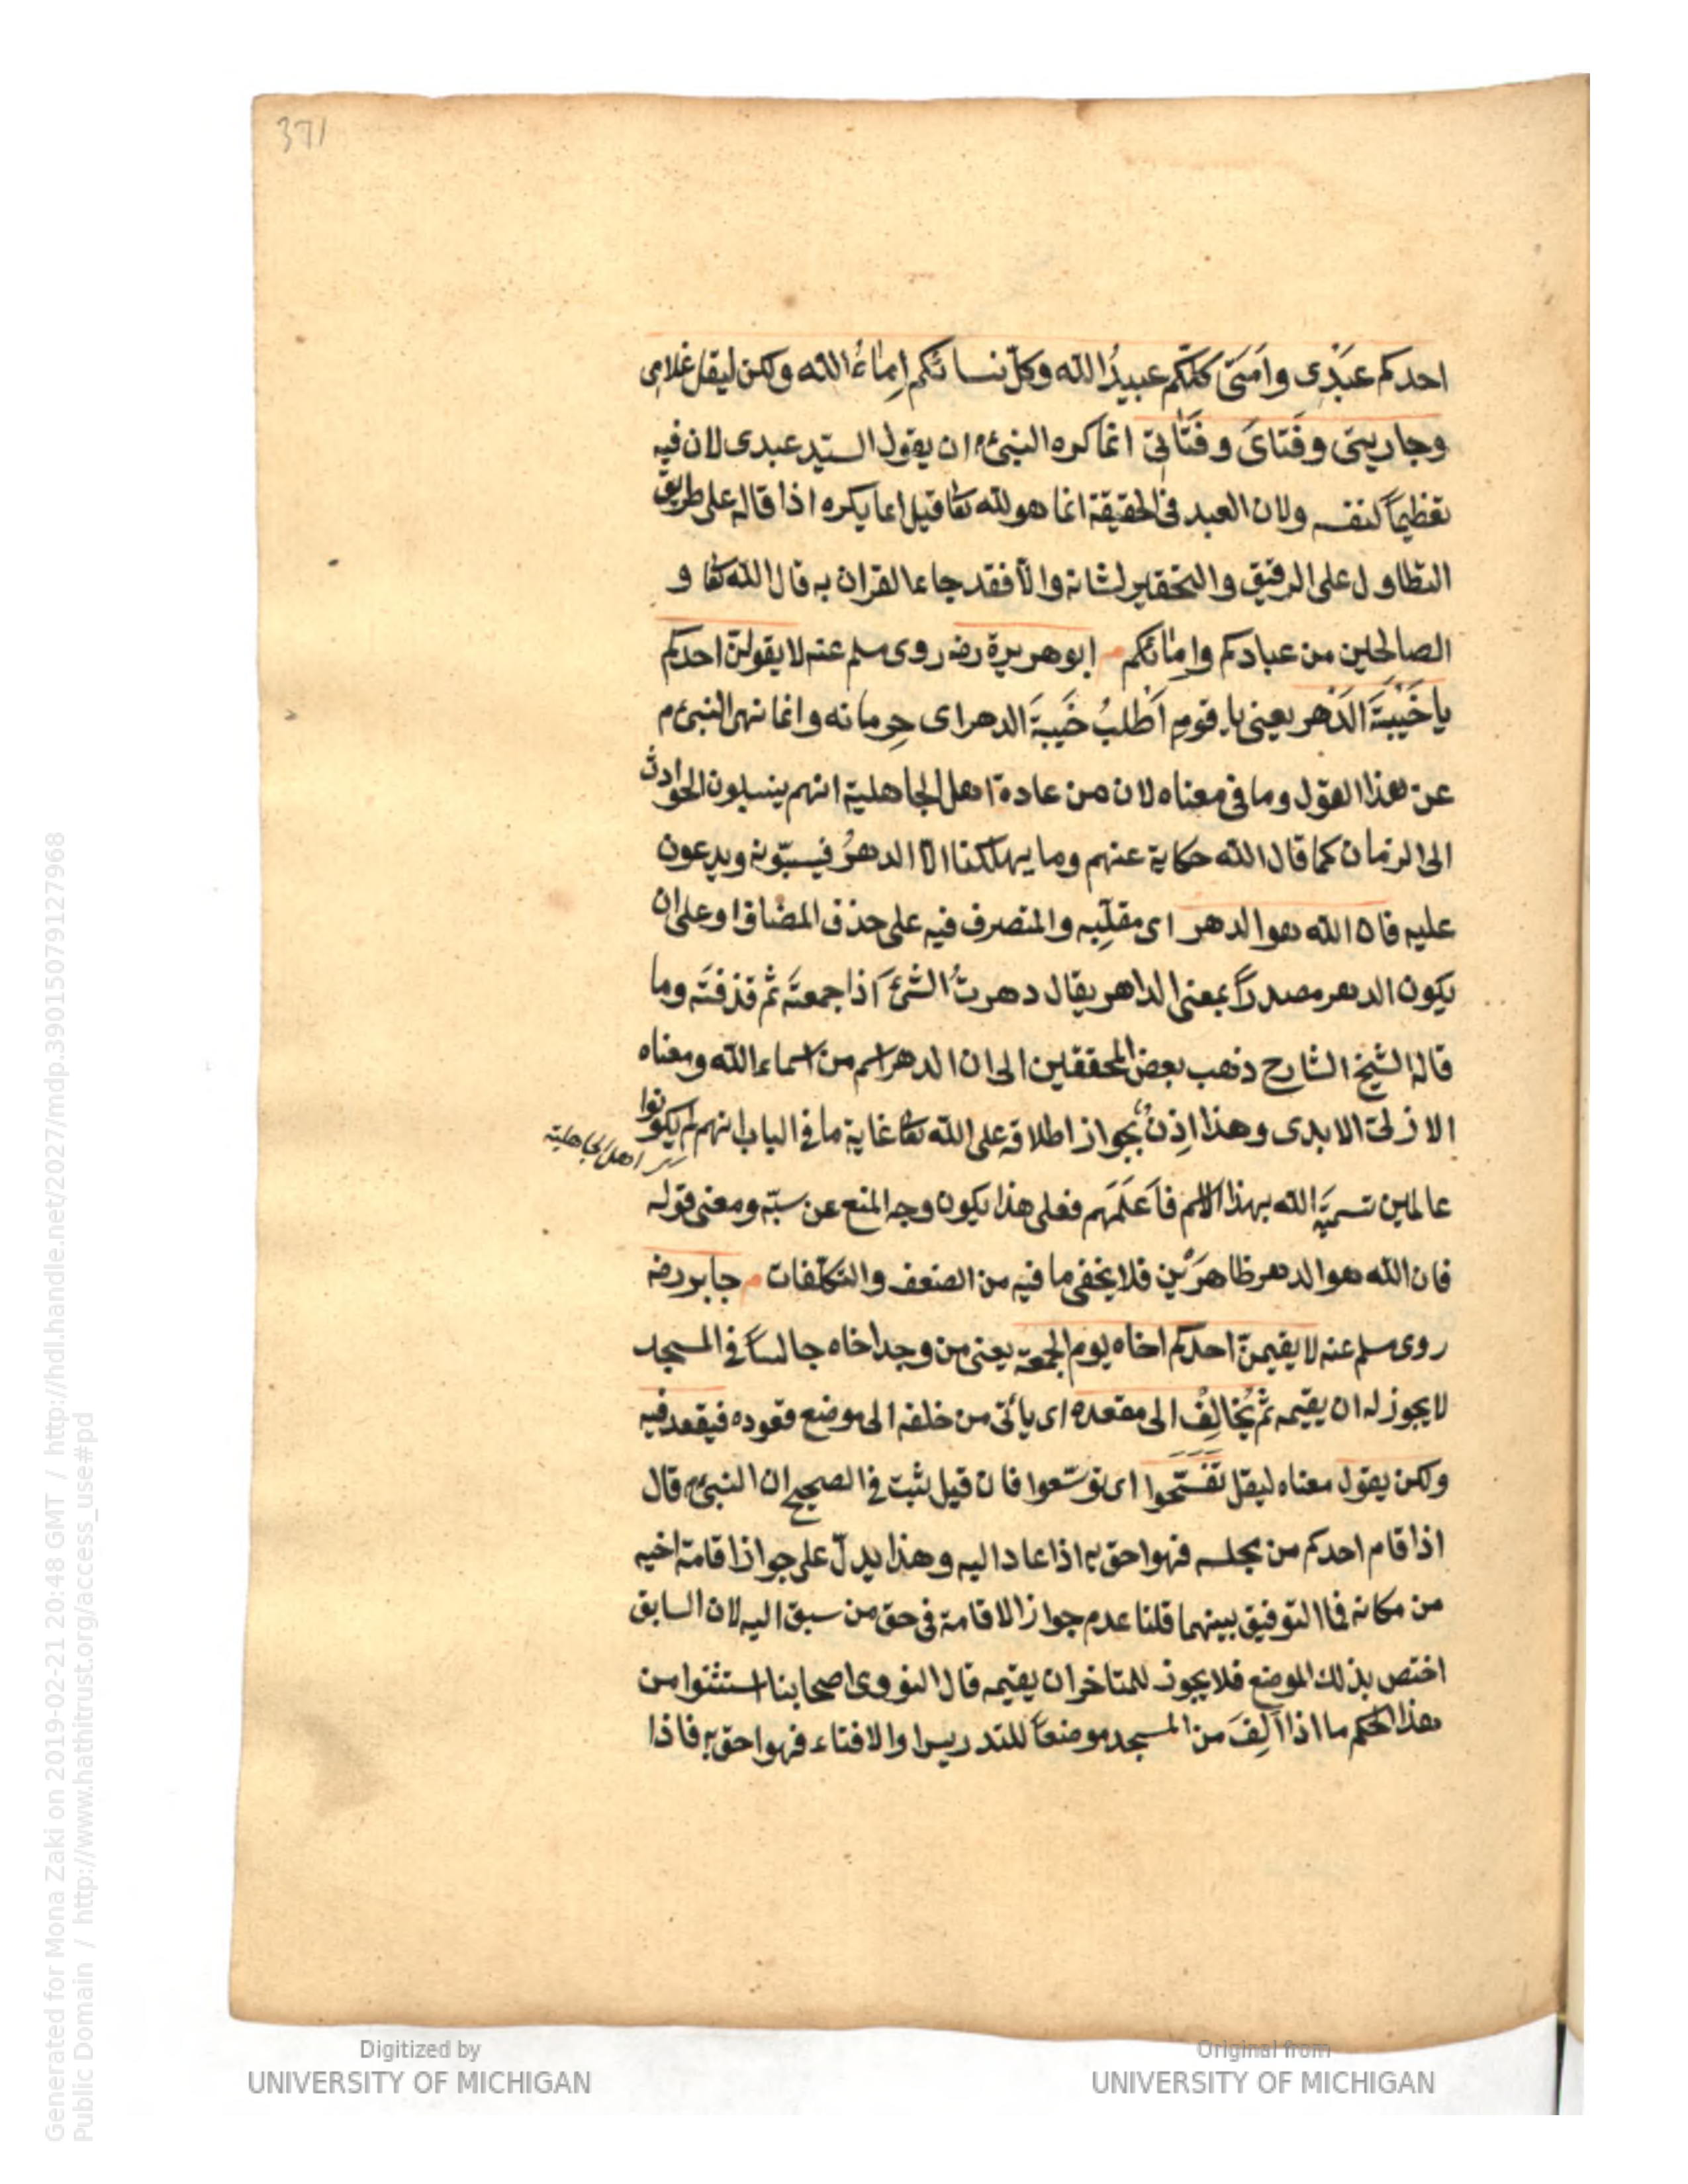 371
احدكم عَبْدِى واَمَتى كلّكم عبيدُ الله وكلّ نسائكم اِماءُ الله ولكن ليقل غلامى
وجاريتى وفَتاىَ وفَتاتى انما كره النبىء م ان يقول السيّد عبدى لان فيه
تعظيماً لنفسه ولان العبد فى الحقيقة انما هو لله تعا قيل انما يكره اذا قاله على طريق
التطاول على الرقيق والتحقير لشانه والّا فقد جاء القران به قال الله تعا و
الصالحين من عبادكم وامائكم م ابو هريرة رضه روى مسلم عنه لا يقولنّ احدكم
يا خَيْبَةَ الدَهْر يعنى يا قوم اَطْلبُ خَيبةَ الدهر اى حِرمانه وانما نهى النبىء م
عن هذا القول وما فى معناه لان من عادة اهل الجاهلية انهم ينسبون الحوادث
الى الزمان كما قال الله حكاية عنهم وما يهلكنا الّا الدهرُ فيسبّونه ويدعون
عليه فان الله هو الدهر اى مقلِّبه والمتصرف فيه على حذف المضاف او على ان
يكون الدهر مصدراً بمعنى الداهر يقال دهرتُ الشئَ اذا جمعتَه ثم قذفتَه وما
قاله الشيخ الشارح ذهب بعض المحققين الى ان الدهر اسم من اسماء الله ومعناه
الازلىّ الابدى وهذا اِذنٌ بجواز اطلاقه على الله تعا غاية ما فى الباب انهم لم يكونوا
اهل الجاهلية
عالمين تسميَة الله بهذا الاسم فاَعلَمَهم فعلى هذا يكون وجه المنع عن سبّه ومعنى قوله
فان الله هو الدهر ظاهرَيْن فلا يخفى ما فيه من الضعف والتكلّفات م جابر رضه
روى مسلم عنه لا يقيمنّ احدكم اخاه يوم الجمعة يعنى من وجد اخاه جالساً فى المسجد
لا يجوز له ان يقيمه ثم يُخالِفُ الى مقعده اى يأتى من خلفه الى موضع قعوده فيقعد فيه
ولكن يقول معناه ليقل تَفَسَّحوا اى توسّعوا فان قيل ثبت فى الصحيح ان النبىء م قال
اذا قام احدكم من مجلسه فهو احق به اذا عاد اليه وهذا يدلّ على جواز اقامة اخيه
من مكانه فما التوفيق بينهما قلنا عدم جواز الاقامة فى حق من سبق اليه لان السابق
اختص بذلك الموضع فلا يجوز للمتاخر ان يقيمه قال النووى اصحابنا استثنوا من
هذا الحكم ما اذا اَلِفَ من المسجد موضعاً للتدريس او الافتاء فهو احق به فاذا
Digitized by
UNIVERSITY OF MICHIGAN
Original from
UNIVERSITY OF MICHIGAN
Generated for Mona Zaki on 2019-02-21 20:48 GMT / http://hdl.handle.net/2027/mdp.39015079127968
Public Domain / http://www.hathitrust.org/access_use#pd